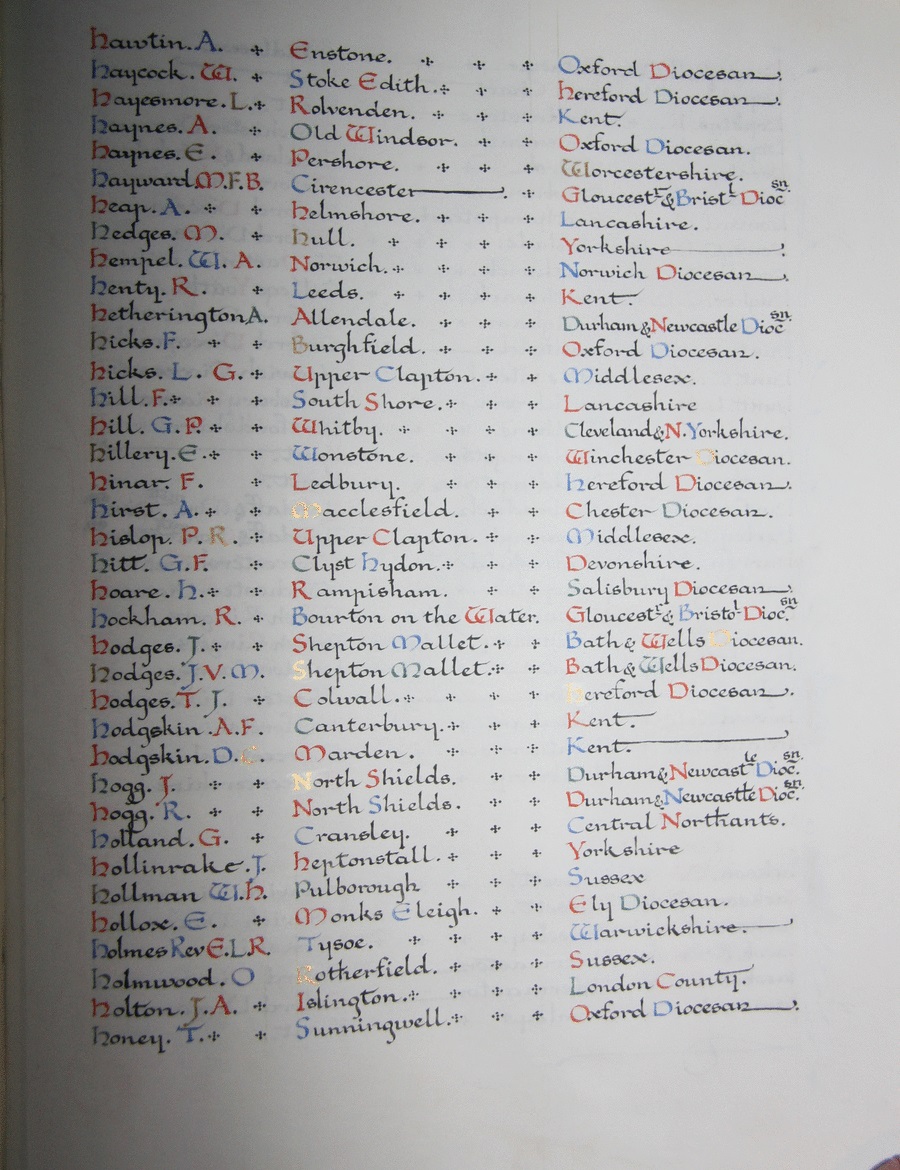 Hawtin. A. Enstone. Oxford Diocesan.
Haycock. W. Stoke Edith. Hereford Diocesan.
Hayesmore. L. Rolvenden. Kent.
Haynes. A. Old Windsor. Oxford Diocesan.
Haynes. E. Pershore. Worcestershire.
Hayward M.F.B. Cirencester. Gloucest.r & Bristl. Diocsn.
Heap. A. Helmshore. Lancashire.
Hedges. M. Hull. Yorkshire.
Hempel. W. A. Norwich. Norwich Diocesan.
Henty. R. Leeds. Kent.
Hetherington A. Allendale. Durham & Newcastle Diocsn.
Hicks. F. Burghfield. Oxford Diocesan.
Hicks. L. G. Upper Clapton. Middlesex.
Hill. F. South Shore. Lancashire
Hill. G. P. Whitby. Cleveland & N. Yorkshire.
Hillery. E. Wonstone. Winchester Diocesan.
Hinar. F. Ledbury. Hereford Diocesan.
Hirst. A. Macclesfield. Chester Diocesan.
Hislop. P. R. Upper Clapton. Middlesex.
Hitt. G.F. Clyst Hydon. Devonshire.
Hoare. H. Rampisham. Salisbury Diocesan.
Hockham. R. Bourton on the Water. Gloucestr & Bristol Diocsn.
Hodges. J. Shepton Mallet. Bath & Wells Diocesan.
Hodges. J.V. M. Shepton Mallet. Bath & Wells Diocesan.
Hodges. T. J. Colwall. Hereford Diocesan.
Hodgskin. A.F. Canterbury. Kent.
Hodgskin. D.C. Marden. Kent.
Hogg. J. North Shields. Durham & Newcastle Diocsn.
Hogg. R. North Shields. Durham & Newcastle Diocsn.
Holland. G. Cransley. Central Northants.
Hollinrake. J. Heptonstall. Yorkshire
Hollman W.H. Pulborough Sussex
Hollox. E. Monks Eleigh. Ely Diocesan.
Holmes Rev E.L.R. Tysoe. Warwickshire.
Holmwood. O Rotherfield. Sussex.
Holton. J.A. Islington. London County.
Honey. T. Sunningwell. Oxford Diocesan.